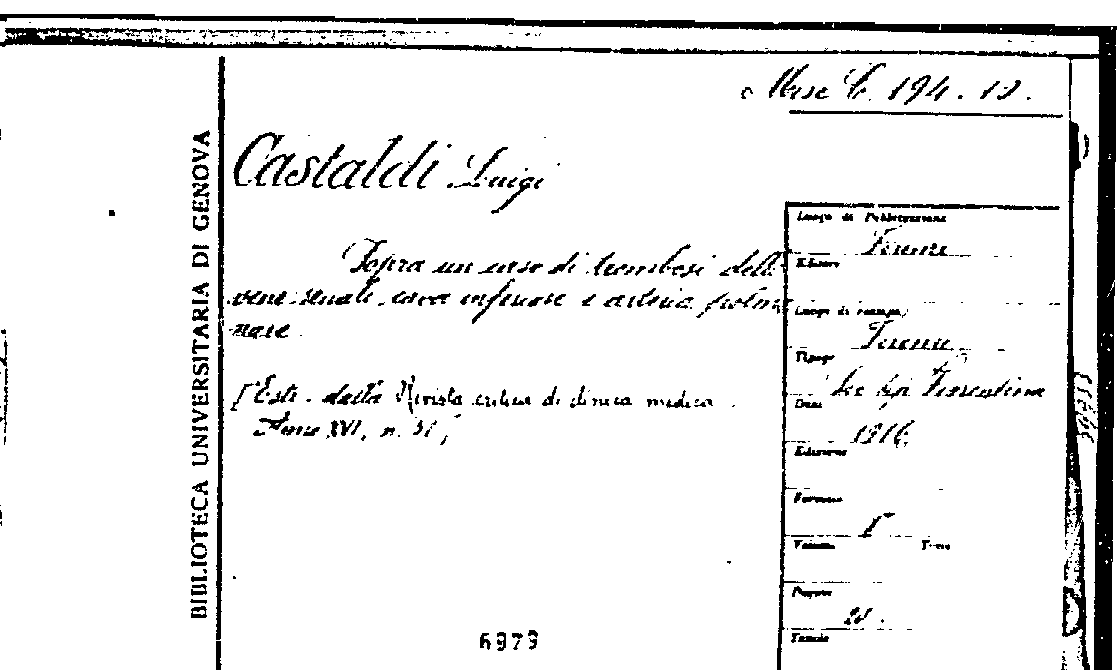 Misc C. 194. 12.
BIBLIOTECA UNIVERSITARIA DI GENOVA
Castaldi Luigi
Sopra un caso di trombosi delle
vene renali, cava inferiore e arteria polmo
nare
[Estr. dalla Rivista critica di clinica medica
Anno XVI, n. 51]
Luogo di Pubblicazione
Firenze
Editore
Luogo di stampa
Firenze
Tipogr
Soc tip Fiorentina
Data
1916
Edizione
Formato
Volume
Tomo
Pagine
Tavole
6979